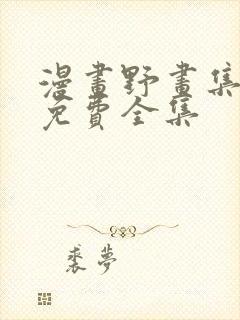 漫畫野畫集
免費全集
裘夢